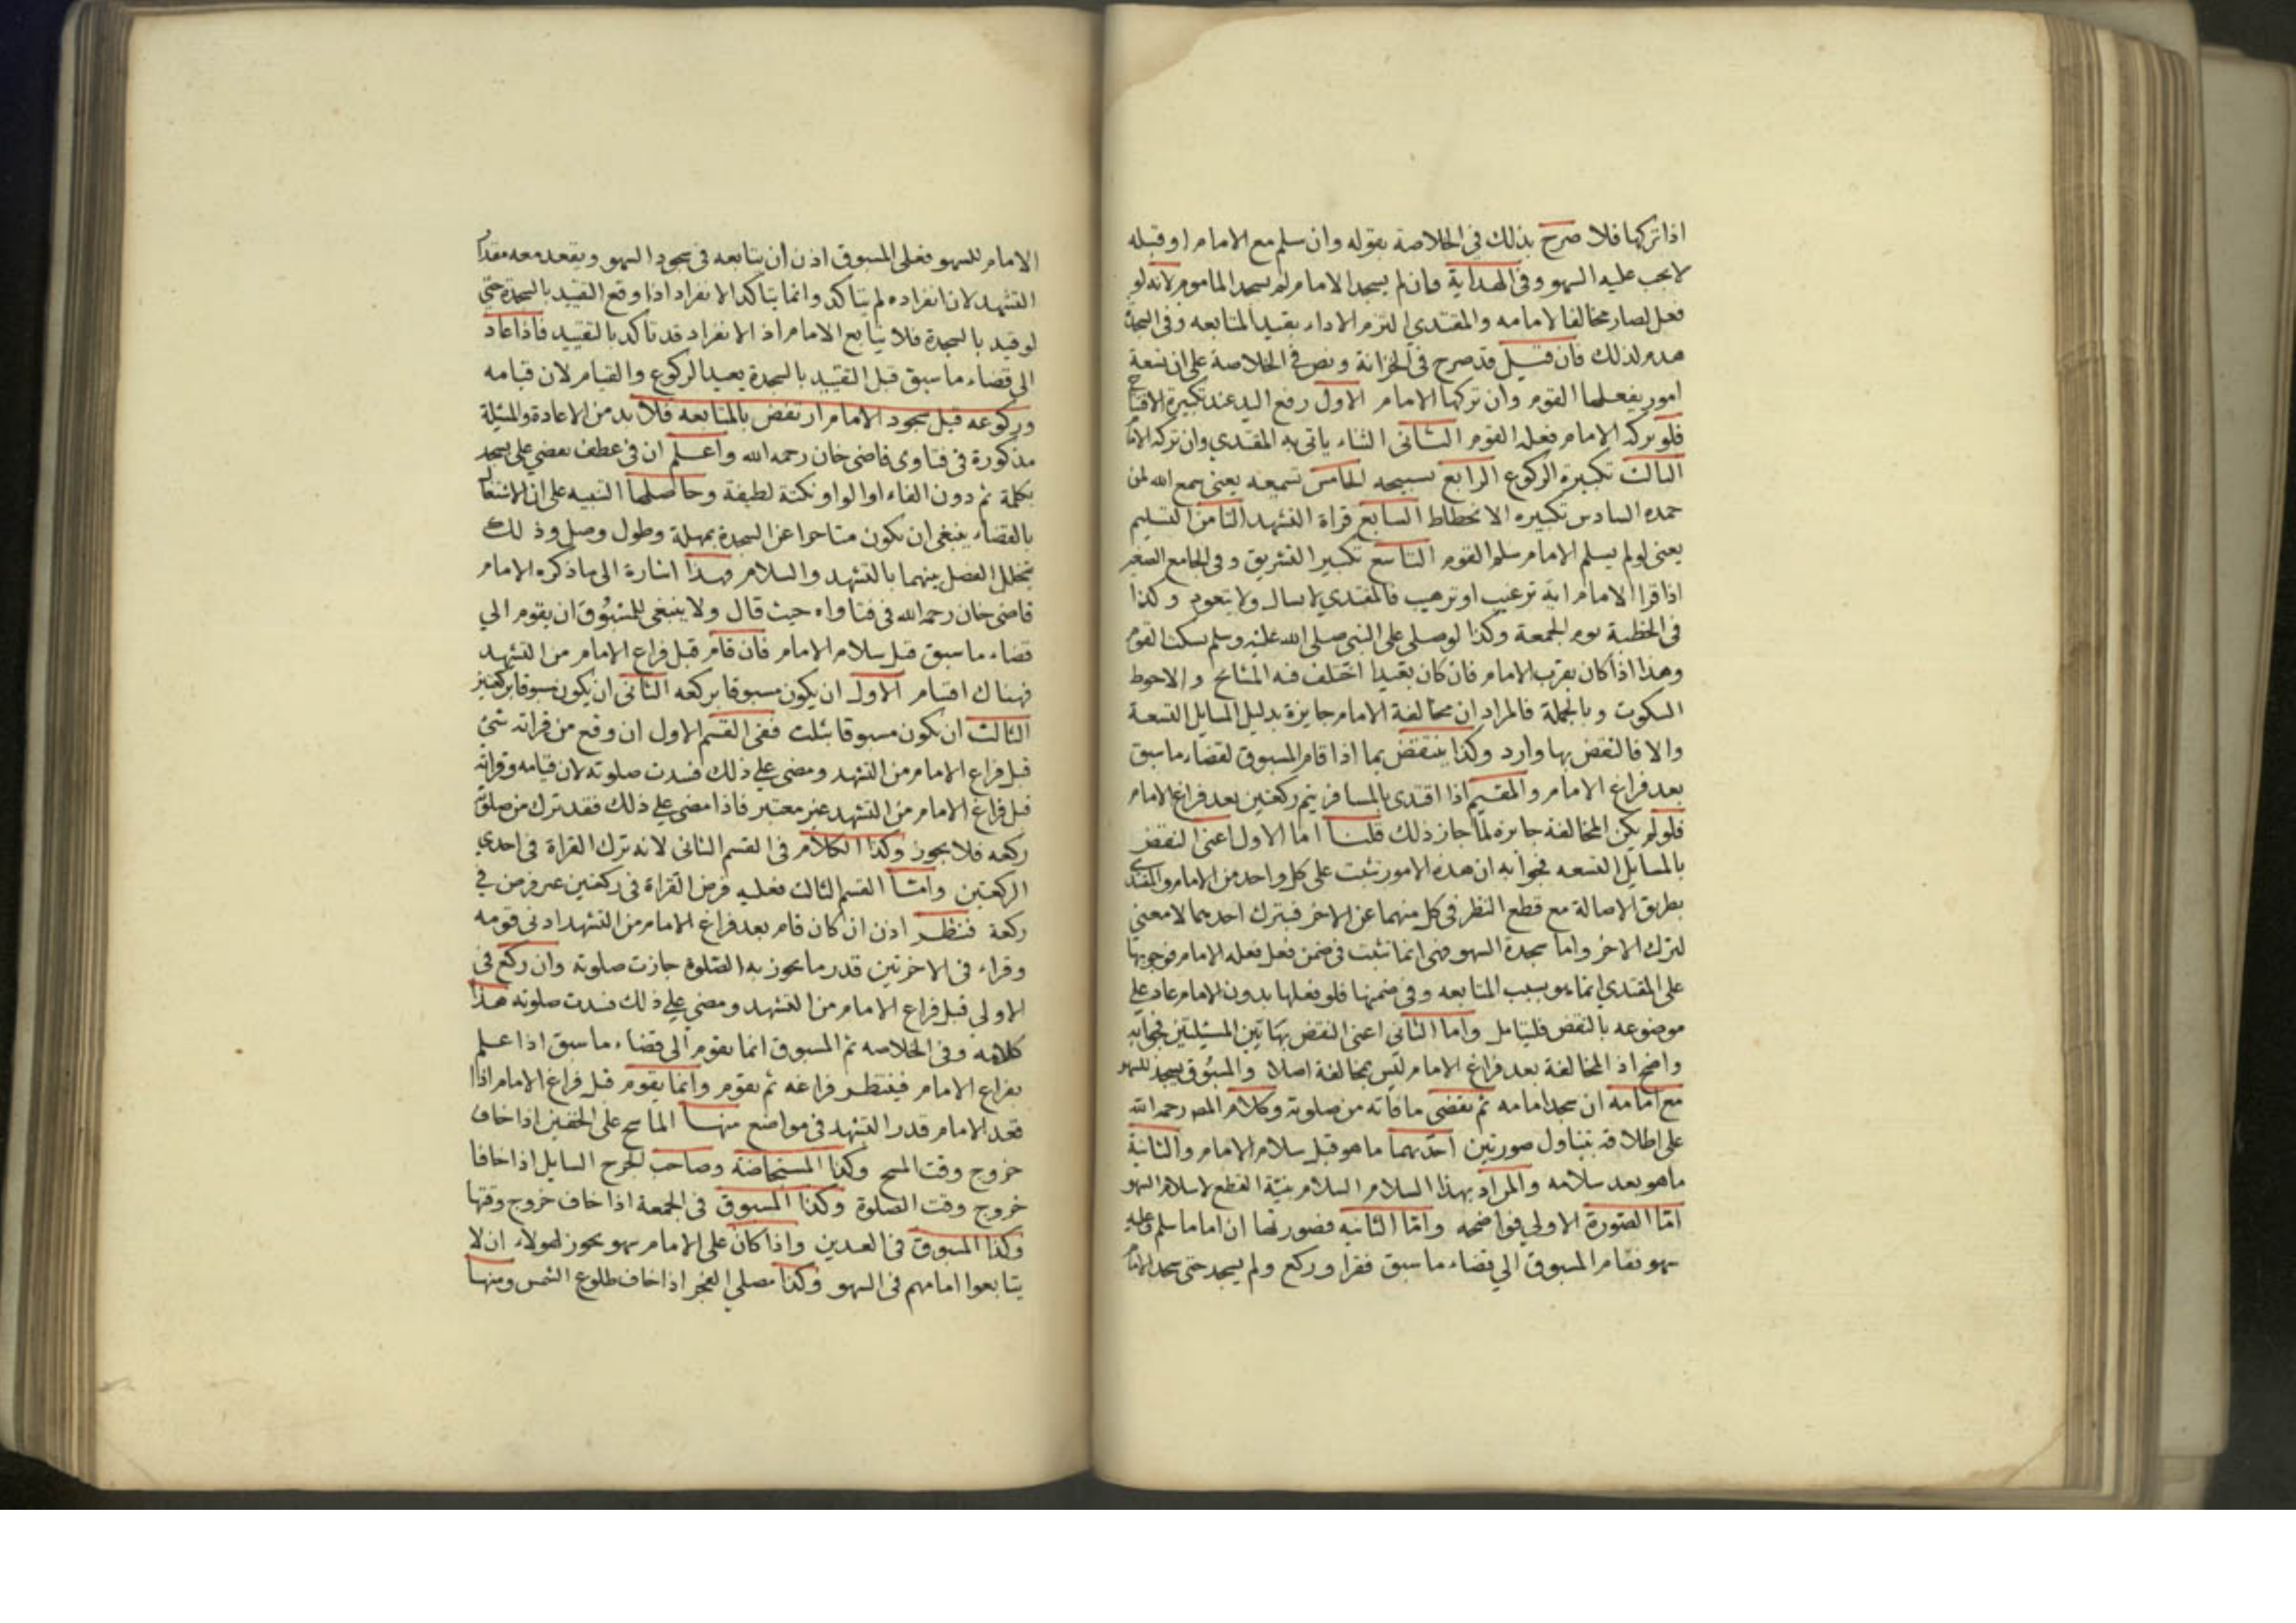 اذا تركها فلا صرح بذلك في الخلاصة بقوله وان سلم مع الامام او قبله
لا يجب عليه السهو وفي الهداية فان لم يسجد الامام لم يسجد الماموم لانه لو
فعل لصار مخالفا لامامه والمقتدي التزم الاداء بقيد المتابعه وفي السجدة
هدم لذلك فان قيل قد صرح في الخزانة ونص في الخلاصة على ان تسعة
امور يفعلها القوم وان تركها الامام الاول رفع اليد عند تكبيرة الافتتاح
فلو تركه الامام فعله القوم الثاني الثناء ياتى به المقتدي وان تركه الامام
الثالث تكبيرة الركوع الرابع تسبيحه الخامس تسميعه يعنى سمع الله لمن
حمده السادس تكبيره الانحطاط السابع قراة التشهد الثامن التسليم
يعنى لو لم يسلم الامام سلم القوم التاسع تكبير التشريق وفي الجامع الصغير
اذا قرا الامام اية ترغيب او ترهيب فالمقتدي لا يسال ولا يتعوذ وكذا
في الخطبة يوم الجمعة وكذا لو صلى على النبي صلى الله عليه وسلم يسكت القوم
وهذا اذا كان بقرب الامام فان كان بعيدا اختلف فيه المشايخ والاحوط
السكوت وبالجملة فالمراد ان مخالفة الامام جايزة بدليل المسايل التسعة
والا فالنقض بها وارد وكذا ينتقض بما اذا قام المسبوق لقضاء ما سبق
بعد فراغ الامام والمقيم اذا اقتدى بالمسافر يتم ركعتين بعد فراغ الامام
فلو لم يكن المخالفة جايزة لما جاز ذلك قلنا اما الاول اعنى النقض
بالمسايل التسعه فجوابه ان هذه الامور تثبت على كل واحد من الامام والمقتدي
بطريق الاصالة مع قطع النظر في كل منهما عن الاخر فبترك احدهما لا معنى
لترك الاخر واما سجدة السهو فهى انما تثبت في ضمن فعل فعله الامام فوجوبها
على المقتدي انما هو بسبب المتابعه وفي ضمنها فلو فعلها بدون الامام عاد على
موضوعه بالنقض فليتامل واما الثاني اعنى النقض بهاتين المسئلتين فجوابه
واضح اذ المخالفة بعد فراغ الامام ليس بمخالفة اصلا والمسبوق يسجد للسهو
مع امامه ان سجد امامه ثم يقضى ما فاته من صلوته وكلام المصـ رحمه الله
على اطلاقه يتناول صورتين احديهما ما هو قبل سلام الامام والثانية
ما هو بعد سلامه والمراد بهذا السلام السلام بنية القطع لا سلام السهو
امّا الصورة الاولى فواضحه وامّا الثانيه فصورتها ان اماما سلم وعليه
سهو فقام المسبوق الى قضاء ما سبق فقرا وركع ولم يسجد حتى سجد الامام
الامام للسهو فعلى المسبوق اذن ان يتابعه في سجود السهو ويقعد معه مقدار
التشهد لان انفراده لم يتاكد وانما يتاكد الانفراد اذا وقع التقييد بالسجدة حتى
لو قيد بالسجدة فلا يتابع الامام اذ الانفراد قد تاكد بالتقييد فاذا عاد
الى قضاء ما سبق قبل التقييد بالسجدة يعيد الركوع والقيام لان قيامه
وركوعه قبل سجود الامام ارتفض بالمتابعه فلا بد من الاعادة والمسئلة
مذكورة في فتاوى قاضى خان رحمه الله واعلم ان في عطف يقضي على يسجد
بكلمة ثم دون الفاء او الواو نكتة لطيفة وحاصلها التنبيه على ان الاشتغال
بالقضاء ينبغى ان يكون متاخرا عن السجدة بمهلة وطول وصل وذلك
بتخلل الفصل بينهما بالتشهد والسلام وهذا اشارة الى ما ذكره الامام
قاضى خان رحمه الله في فتاواه حيث قال ولا ينبغى للمسبوق ان يقوم الي
قضاء ما سبق قبل سلام الامام فان قام قبل فراغ الامام من التشهد
فهناك اقسام الاول ان يكون مسبوقا بركعه الثاني ان يكون مسبوقا بركعتين
الثالث ان يكون مسبوقا بثلث ففى القسم الاول ان وقع من قراته شئ
قبل فراغ الامام من التشهد ومضى على ذلك فسدت صلوته لان قيامه وقراته
قبل فراغ الامام من التشهد غير معتبر فاذا مضى على ذلك فقد ترك من صلوته
ركعه فلا يجوز وكذا الكلام في القسم الثاني لانه ترك القراة في احدي
الركعتين وامّا القسم الثالث فعليه فرض القراة في ركعتين وفرض في
ركعة فننظر اذن ان كان قام بعد فراغ الامام من التشهد ادنى قومه
وقراء في الاخرتين قدر ما يجوز به الصلوة جازت صلوته وان ركع في
الاولى قبل فراغ الامام من التشهد ومضى على ذلك فسدت صلوته هذا
كلامه وفي الخلاصه ثم المسبوق انما يقوم الى قضاء ما سبق اذا علم
بفراغ الامام فينتظر فراغه ثم يقوم وانما يقوم قبل فراغ الامام اذا
قعد الامام قدر التشهد في مواضع منها الماسح على الخفين اذا خاف
خروج وقت المسح وكذا المستحاضة وصاحب الجرح السايل اذا خافا
خروج وقت الصلوة وكذا المسبوق في الجمعة اذا خاف خروج وقتها
وكذا المسبوق في العيدين واذا كان على الامام سهو يجوز لهولاء ان لا
يتابعوا امامهم في السهو وكذا مصلي الفجر اذا خاف طلوع الشمس ومنها